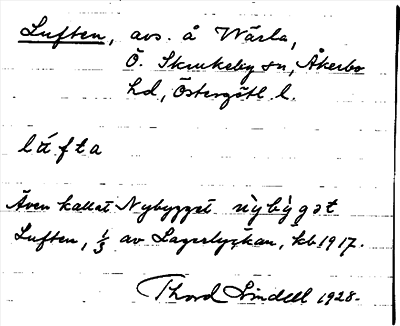 Luften, avs. å Wärla,
Ö. Skrukeby sn, Åkerbo
hd, Östergötl. l.
lúfta
Även kallat Nybygget nỳbỳgət
Luften, 1/3 av Lagerlyckan, kb 1917.
Thord Lindell 1928.